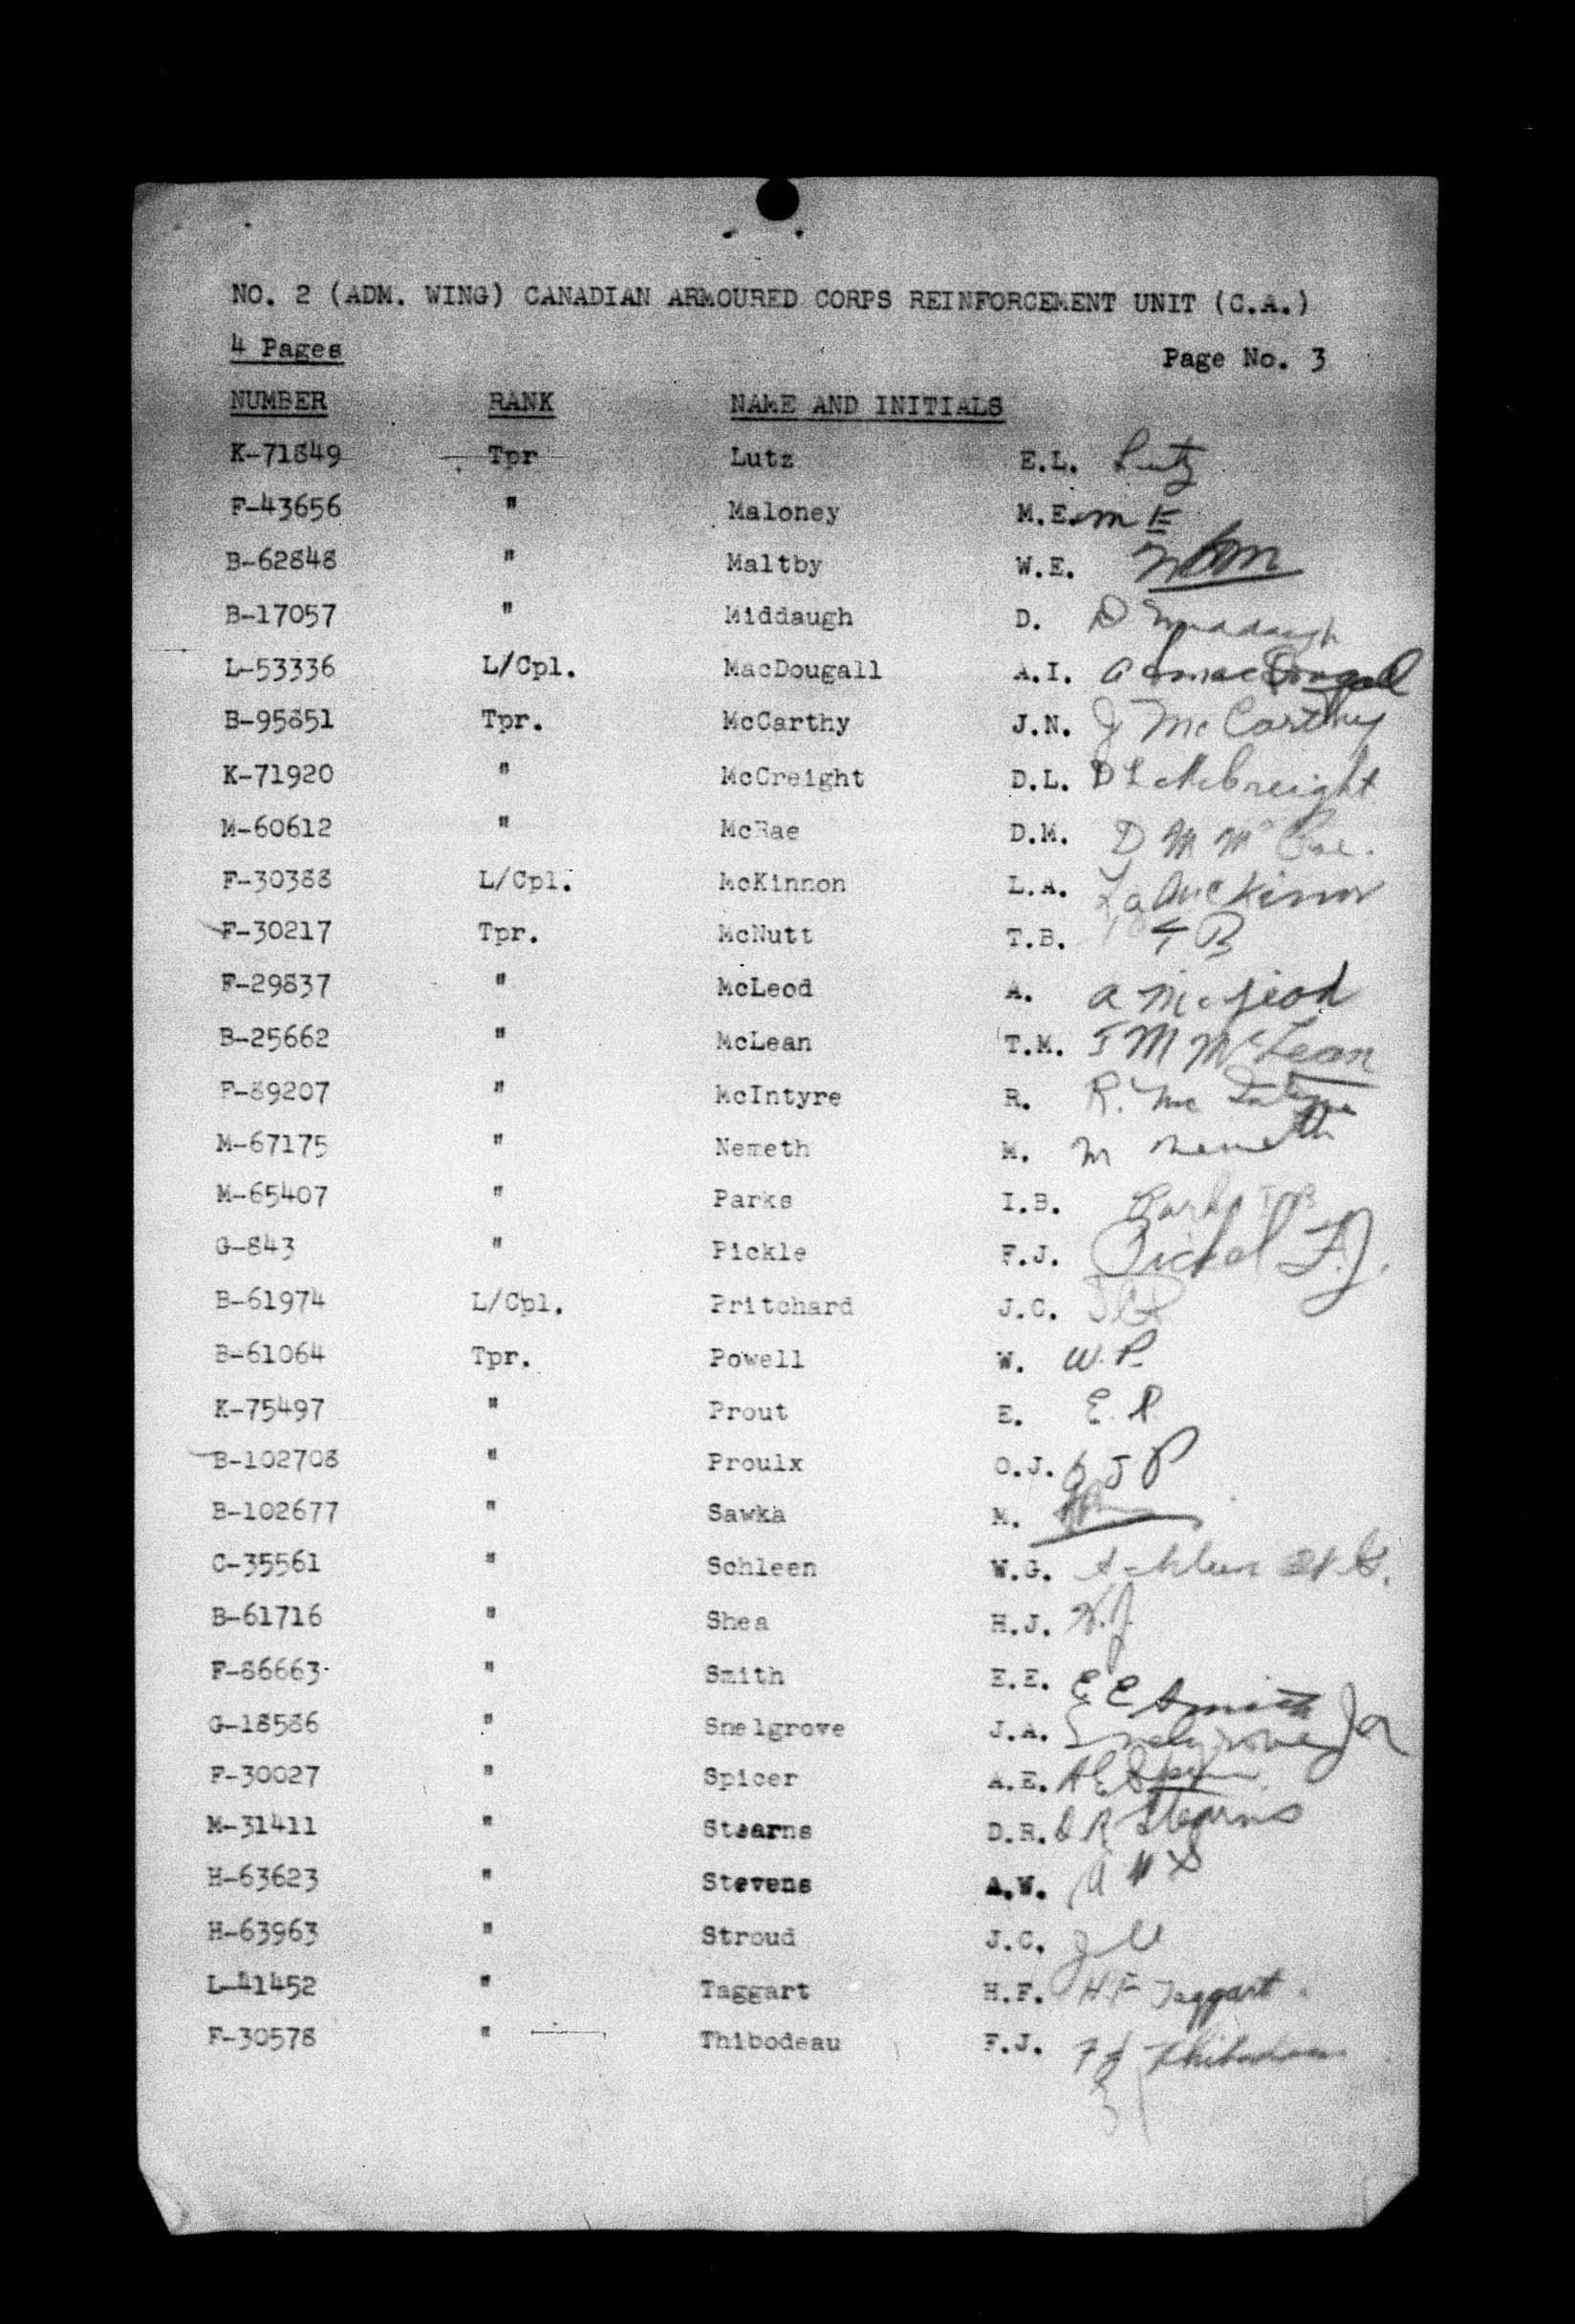 NO. 2 (ADM. WING) CANADIAN ARMOURED CORPS REINFORCEMENT UNIT (C.A.)
4 Pages Page No. 3
NUMBER RANK NAME AND INITIALS
K-71849 Tpr Lutz E.L. Lutz
F-43656 " Maloney M.E. M E
B-62848 " Maltby W.E.
B-17057 " Middaugh D. D Middaugh
L-53336 L/Cpl. MacDougall A.I. A I MacDougall
B-95851 Tpr. McCarthy J.N. J McCarthy
K-71920 " McCreight D.L. D L McCreight
M-60612 " McRae D.M. D M McRae.
F-30388 L/Cpl. McKinnon L.A. L a McKinnon
F-30217 Tpr. McNutt T.B. T B
F-29837 " McLeod A. a McLeod
B-25662 " McLean T.M. T M McLean
F-89207 " McIntyre R. R. McIntyre
M-67175 " Nemeth M. M Nemeth
M-65407 " Parks I.B. Parks I B
G-843 " Pickle F.J. Pickel F.J.
B-61974 L/Cpl. Pritchard J.C. JCP
B-61064 Tpr. Powell W. W. P.
K-75497 " Prout E. E. P.
B-102708 " Proulx O.J. O J P
B-102677 " Sawka M.
C-35561 " Schleen W.G. Schleen W.G.
B-61716 " Shea H.J. H.J.
F-86663 " Smith E.E. E E Smith
G-18586 " Snelgrove J.A. Snelgrove Ja
F-30027 " Spicer A.E. A E Spicer
M-31411 " Stearns D.R. D R Stearns
H-63623 " Stevens A.W. A W S
H-63963 " Stroud J.C.
L-41452 " Taggart H.F. H F Taggart
F-30578 " Thibodeau F.J. F J Thibodeau